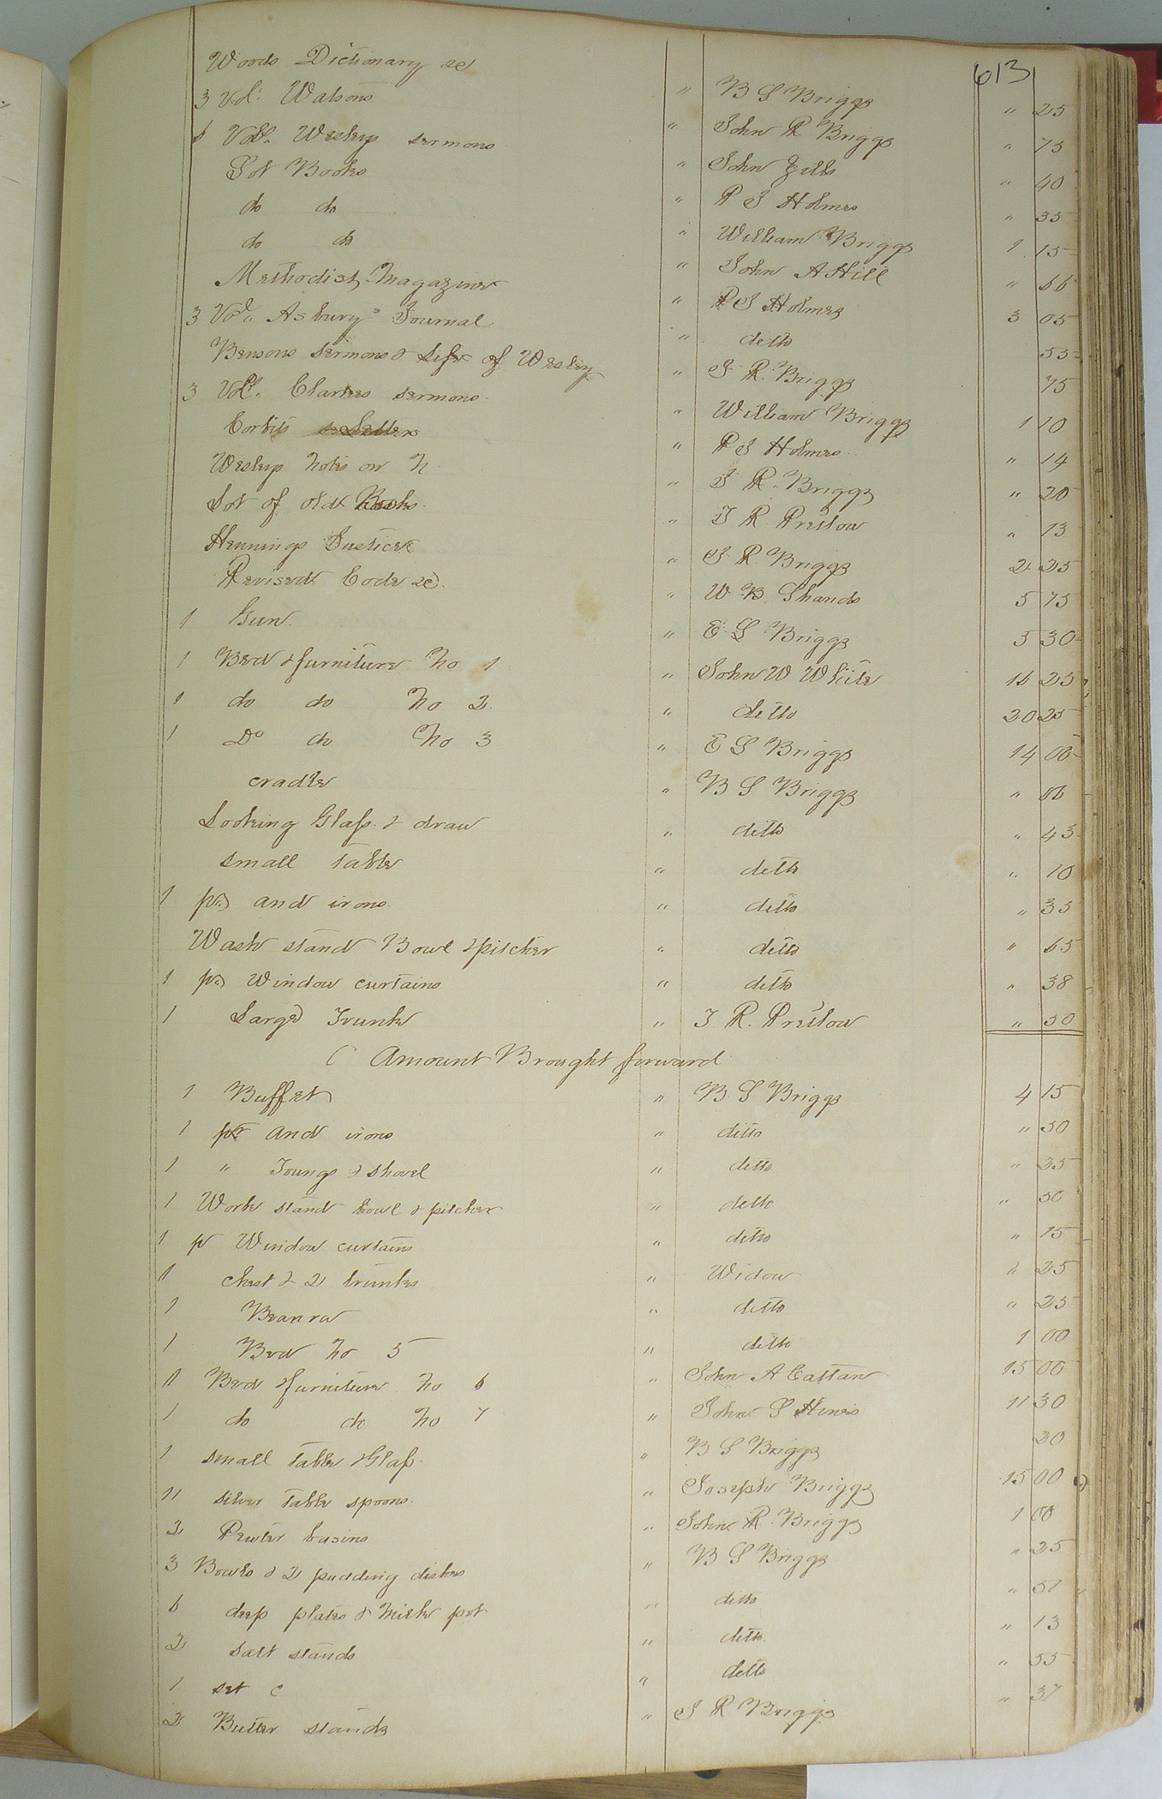 613
Woods Dictionary &c " B S Briggs " 25
3 Vol: Watsons " John R Briggs " 75
6 Vol. Wesleys sermons " John " 40
Lot Books " R S Holmes " 35
do do " William Briggs 1 15
do do " John A Hill " 66
Methodist Magazine " R S Holmes 3 05
3 Vol. Asburys Journal " ditto 55
Bensons sermons & Life of Wesley " J. R. Briggs 75
3 Vol. Clarkes sermons " William Briggs 1 10
" R S Holmes " 14
Wesleys Notes on N. " J R. Briggs " 20
Lot of old Books " J R Prestow " 13
Hennings Justice " J R Briggs 2 25
Revised Code &c. " W B Shands 5 75
1 Gun " E S Briggs 5 30
1 Bed & furniture No 1 " John W White 16 25
1 do do No 2 " ditto 20 25
1 Do do No 3 " E S Briggs 14 00
cradle " B S Briggs "
Looking Glass & draw " ditto " 43
small table " ditto " 10
1 pr and irons " ditto " 35
Wash stand Bowl & pitcher " ditto " 65
1 pr Window curtains " ditto " 38
1 Large Trunk " J R. Prestow " 50
Amount Brought forward
1 Buffet " B S Briggs 4 15
1 pr and irons " ditto " 50
1 " Toungs & shovel " ditto " 35
1 Work stand bowl & pitcher " ditto " 50
1 pr Window curtains " ditto " 15
1 chest & 2 trunks " Widow " 25
1 " ditto " 25
1 Bed No 5 " ditto 1 00
1 Bed & furniture No 6 " John A 15 00
1 do do No 7 " John S Hines 11 30
1 small table & Glass " B S Briggs 30
11 silver table spoons " Joseph Briggs 15 00
2 Pewter basins " John R. Briggs 1 00
3 Bowls & 2 pudding dishes " B S Briggs " 25
6 deep plates & Milk pot " ditto " 57
2 salt stands " ditto " 13
1 set c " ditto " 55
2 Butter stands " J R Briggs " 37